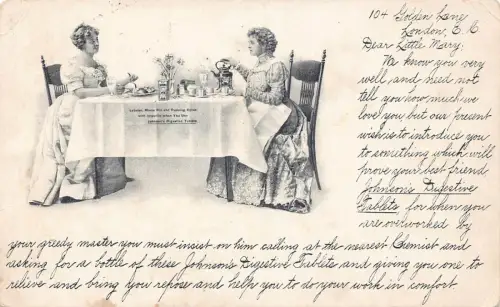 104 Golden Lane
London, E. C.
Dear Little Mary:
We know you very
well, and need not
tell you how much we
love you, but our present
wish is to introduce you
to something which will
prove your best friend
Johnson's Digestive
Tablets, for when you
are overworked by
your greedy master you must insist on him calling at the nearest Chemist and
asking for a bottle of these Johnson's Digestive Tablets and giving you one to
relieve and bring you repose and help you to do your work in comfort
Johnson's Digestive Tablets